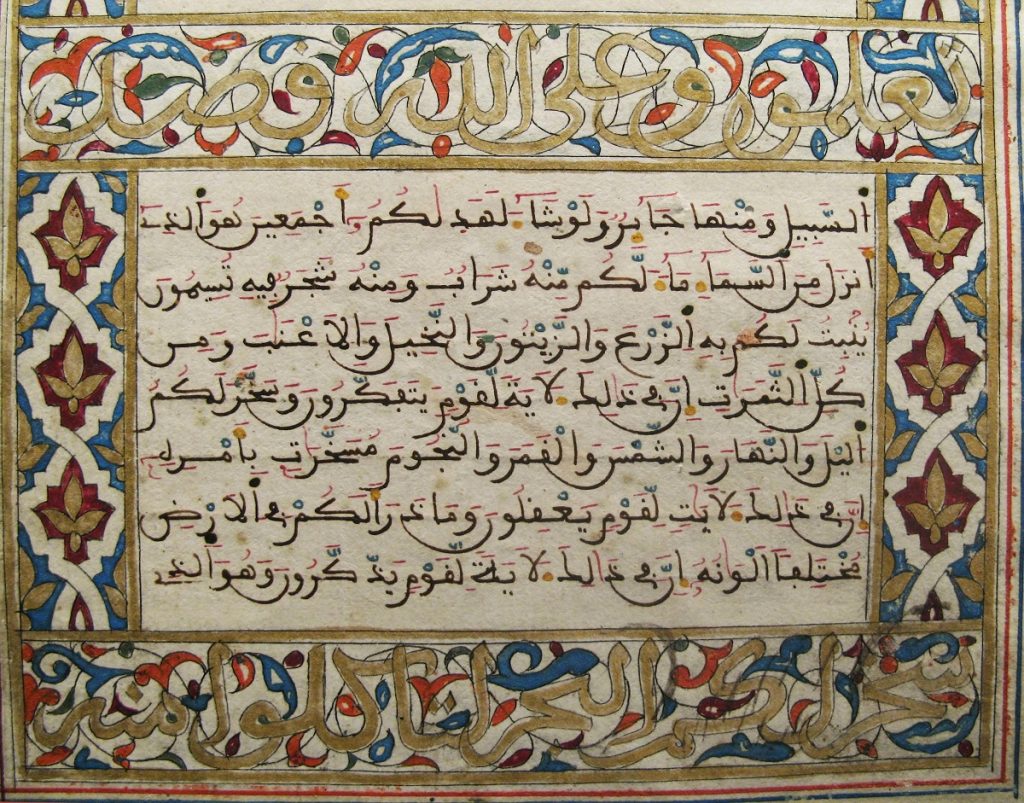 تعلمون وعلى الله قصد
اَلسَّبِيلِ وَمِنْهَا جَآئِرٌ وَلَوْ شَآءَ لَهَدٰىكُمُ أَجْمَعِينَ هُوَ اَلذِے
أَنزَلَ مِنَ اَلسَّمَآءِ مَآءً لَّكُم مِّنْهُ شَرَابٌ وَمِنْهُ شَجَرٌ فِيهِ تُسِيمُونَ
يُنۢبِتُ لَكُم بِهِ اِلزَّرْعَ وَالزَّيْتُونَ وَالنَّخِيلَ وَالَاعْنَٰبَ وَمِن
كُلِّ اِلثَّمَرَٰتِ إِنَّ فِي ذَٰلِكَ لَأٓيَةً لِّقَوْمٍ يَتَفَكَّرُونَ وَسَخَّرَ لَكُمُ
اُليْلَ وَالنَّهَارَ وَالشَّمْسَ وَالْقَمَرَ وَالنُّجُومَ مُسَخَّرَٰتٍ بِأَمْرِهِۦٓ
إِنَّ فِي ذَٰلِكَ لَأٓيَٰتٍ لِّقَوْمٍ يَعْقِلُونَ وَمَا ذَرَأَ لَكُمْ فِي اِلَارْضِ
مُخْتَلِفًا اَلْوَٰنُهُۥٓ إِنَّ فِي ذَٰلِكَ لَأٓيَةً لِّقَوْمٍ يَذَّكَّرُونَ وَهُوَ اَلذِے
سخر لكم البحر لتاكلوا منه